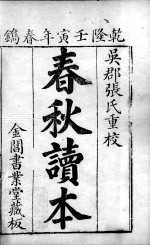 乾隆壬寅年春鐫
吳郡張氏重校
春秋讀本
金閶書業堂藏板